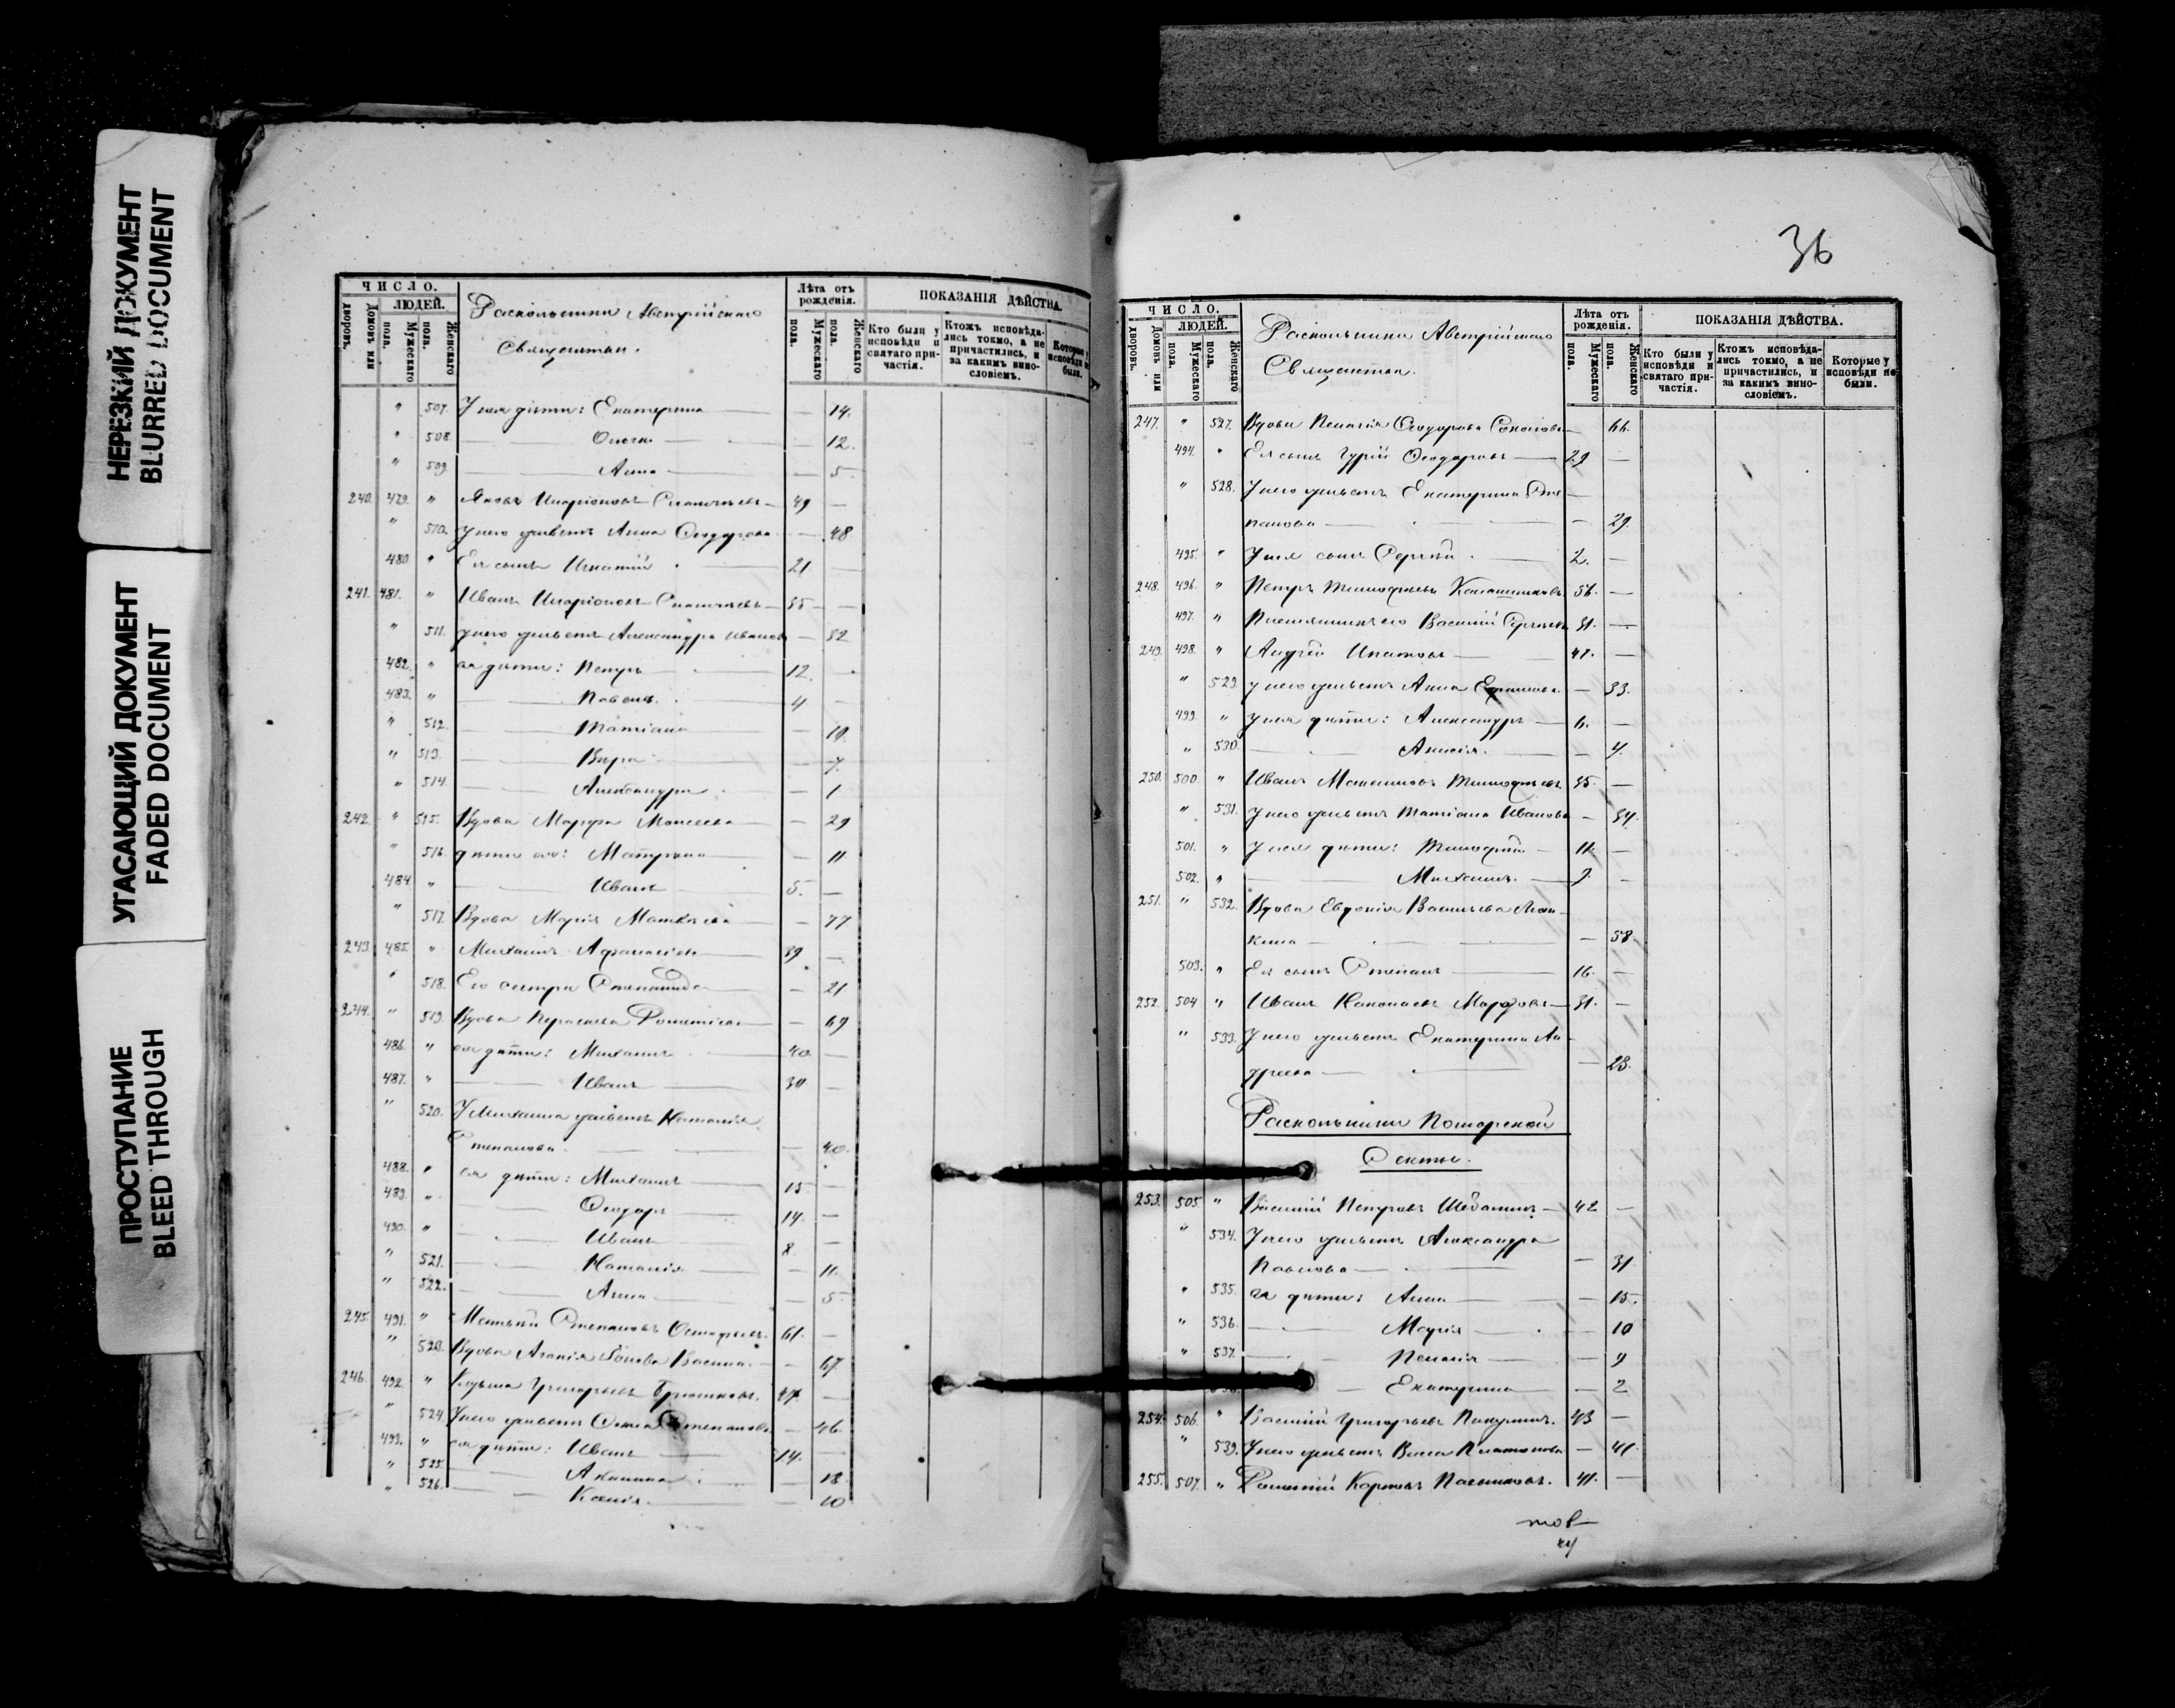 НЕРЕЗКИЙ ДОКУМЕНТ
BLURRED DOCUMENT
УГАСАЮЩИЙ ДОКУМЕНТ
FADED DOCUMENT
ПРОСТУПАНИЕ
BLEED THROUGH
ЧИСЛО.
ЛЮДЕЙ.
Домовъ или дворовъ.
Мужескаго пола.
Женскаго пола.
Раскольники Австрійскаго
Священства.
Лѣта отъ рожденія.
Мужескаго пола.
Женскаго пола.
ПОКАЗАНІЯ ДѢЙСТВА.
Кто были у исповѣди и святаго причастія.
Ктожъ исповѣдались токмо, а не причастились, и за какимъ винословіемъ.
Которые у исповѣди не были.
" 507. У нея дѣти: Екатерина — 14.
" 508. 12.
" 509 Анна — 5
240. 479. " Яковъ Иларіоновъ 49 —
" 510. У него жена Анна Ѳеодорова — 48
480. " Ея сынъ Игнатій 21 —
241. 481. " Иванъ Иларіоновъ 35 —
" 511. У него жена Александра Иванова — 32
482. " ея дѣти: Петръ 12. —
483. " Павелъ. 4 —
" 512. Татіана — 10.
" 513. Вѣра — 7.
" 514. Александра — 1
242. " 515. Вдова Марфа Моисеева — 29
" 516. дѣти ея: Матрона — 11
484. " Иванъ 5. —
" 517. Вдова Марія Матвѣева — 77
243. 485. " Михаилъ Аѳанасіевъ 39 —
" 518. Его сестра Степанида — 21
244. " 519. Вдова Параскева — 69
486. " ея дѣти: Михаилъ 40 —
487. " Иванъ 30 —
" 520. У Михаила жена Наталія
Степанова. — 40.
488. " ея дѣти: Михаилъ 15 —
489. " Ѳеодоръ 14. —
490. " Иванъ 8. —
" 521. Наталія — 11.
" 522. Анна — 5
245. 491. " Матвѣй Степановъ 61. —
" 523. Вдова Агапія — 67.
246. 492. " Козьма Григорьевъ 47 —
" 524. У него жена Степанова — 46.
493. " ея дѣти: Иванъ 14. —
" 525. Акилина — 12
" 526. Ксенія. — 10
36
ЧИСЛО.
ЛЮДЕЙ.
Домовъ или дворовъ.
Мужескаго пола.
Женскаго пола.
Раскольники Австрійскаго
Священства.
Лѣта отъ рожденія.
Мужескаго пола.
Женскаго пола.
ПОКАЗАНІЯ ДѢЙСТВА.
Кто были у исповѣди и святаго причастія.
Ктожъ исповѣдались токмо, а не причастились, и за какимъ винословіемъ.
Которые у исповѣди не были.
247. " 527. Вдова Пелагія Ѳеодорова — 66.
494. " Ея сынъ Гурій Ѳеодоровъ 29 —
" 528. У него жена Екатерина Сте-
панова — 29.
495. " У нея сынъ Сергѣй 2. —
248. 496. " Петръ Тимофѣевъ Калашниковъ 56. —
497. " Племянникъ его Василій Сергѣевъ 31. —
249. 498. " Андрей Игнатовъ 41. —
" 529. У него жена Анна — 33.
499. " У нея дѣти: Александръ 6. —
" 530. Анисія. — 4.
250. 500. " Иванъ Максимовъ Тимофѣевъ 35. —
" 531. У него жена Татіана Иванова — 34.
501. " У нея дѣти: Тимофей 11. —
502. " Михаилъ. 9. —
251. " 532. Вдова Евгенія Васильева
кина — 58.
503. " Ея сынъ Степанъ 16. —
252. 504 " Иванъ Николаевъ Морозовъ 31. —
" 533. У него жена Екатерина Ан-
дреева — 23.
Раскольники Поморской
Секты.
253. 505. " Василій Петровъ 42 —
" 534. У него жена Александра
Павлова — 31.
" 535. ея дѣти: Анна — 15.
" 536. Марія — 10
" 537. Пелагія — 9
Екатерина — 2
254. 506. " Василій Григорьевъ 43 —
" 539. У него жена Платонова — 41.
255. 507. " Карповъ 41. —